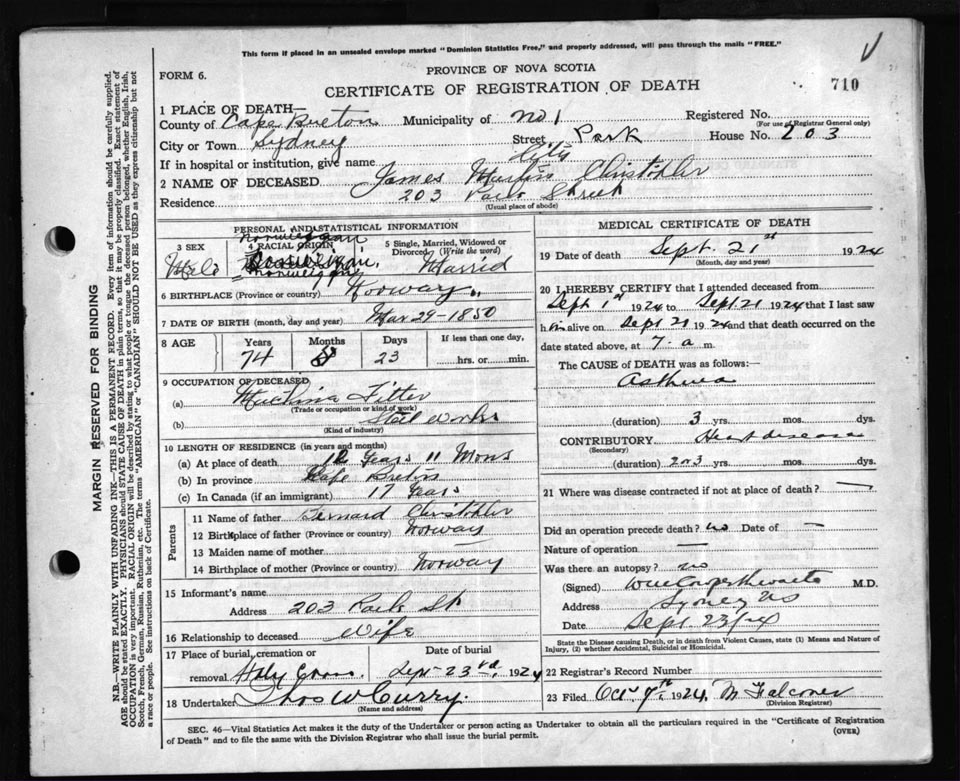 This form if placed in an unsealed envelope marked "Dominion Statistics Free," and properly addressed, will pass through the mails "FREE."
FORM 6.
PROVINCE OF NOVA SCOTIA
710
CERTIFICATE OF REGISTRATION OF DEATH
1 PLACE OF DEATH—
County of Cape Breton Municipality of No 1 Registered No.
(For use of Registrar General only)
City or Town Sydney Street Park House No. 203
If in hospital or institution, give name
2 NAME OF DECEASED James Martin Christopher
Residence 203 Park Street
(Usual place of abode)
PERSONAL AND STATISTICAL INFORMATION
3 SEX
Male
4 RACIAL ORIGIN
Norwegian
5 Single, Married, Widowed or Divorced (Write the word)
Married
6 BIRTHPLACE (Province or country) Norway
7 DATE OF BIRTH (month, day and year) Mar 29-1850
8 AGE Years Months Days If less than one day,
74 23 hrs. or min.
9 OCCUPATION OF DECEASED
(a) Machine Fitter
(Trade or occupation or kind of work)
(b) Steel Works
(Kind of industry)
10 LENGTH OF RESIDENCE (in years and months)
(a) At place of death Years 11 Mons
(b) In province Cape Breton
(c) In Canada (if an immigrant) 17 Years
Parents
11 Name of father Christopher
12 Birthplace of father (Province or country) Norway
13 Maiden name of mother
14 Birthplace of mother (Province or country) Norway
15 Informant's name
Address 203 Park St
16 Relationship to deceased Wife
17 Place of burial, cremation or removal Holy Cross Date of burial Sept 23rd, 1924
18 Undertaker Thos W Curry
(Name and address)
MEDICAL CERTIFICATE OF DEATH
19 Date of death Sept. 21st 1924
(Month, day and year)
20 I HEREBY CERTIFY that I attended deceased from
Sept 1st 1924 to Sept 21 1924 that I last saw
him alive on Sept 21 1924 and that death occurred on the
date stated above, at 7. a m.
The CAUSE OF DEATH was as follows:
Asthma
(duration) 3 yrs. mos. dys.
CONTRIBUTORY Heart disease
(Secondary)
(duration) 2 or 3 yrs. mos. dys.
21 Where was disease contracted if not at place of death? —
Did an operation precede death? no Date of —
Nature of operation —
Was there an autopsy? no
(Signed) M.D.
Address Sydney NS
Sept 23/24
State the Disease causing Death, or in death from Violent Causes, state (1) Means and Nature of Injury, (2) whether Accidental, Suicidal or Homicidal.
22 Registrar's Record Number
23 Filed Oct 9th 1924, M Falconer
(Division Registrar)
SEC. 46—Vital Statistics Act makes it the duty of the Undertaker or person acting as Undertaker to obtain all the particulars required in the "Certificate of Registration
of Death" and to file the same with the Division Registrar who shall issue the burial permit.
(OVER)
MARGIN RESERVED FOR BINDING
N.B.—WRITE PLAINLY WITH UNFADING INK—THIS IS A PERMANENT RECORD. Every item of information should be carefully supplied.
AGE should be stated EXACTLY. PHYSICIANS should STATE CAUSE OF DEATH in plain terms, so that it may be properly classified. Exact statement of
OCCUPATION is very important. RACIAL ORIGIN will be described by stating to what people or tongue the deceased person belonged, whether English, Irish,
Scotch, French, German, Russian, Ruthenian, etc. The terms "AMERICAN" or "CANADIAN" SHOULD NOT BE USED as they express citizenship but not
a race or people. See instructions on back of Certificate.